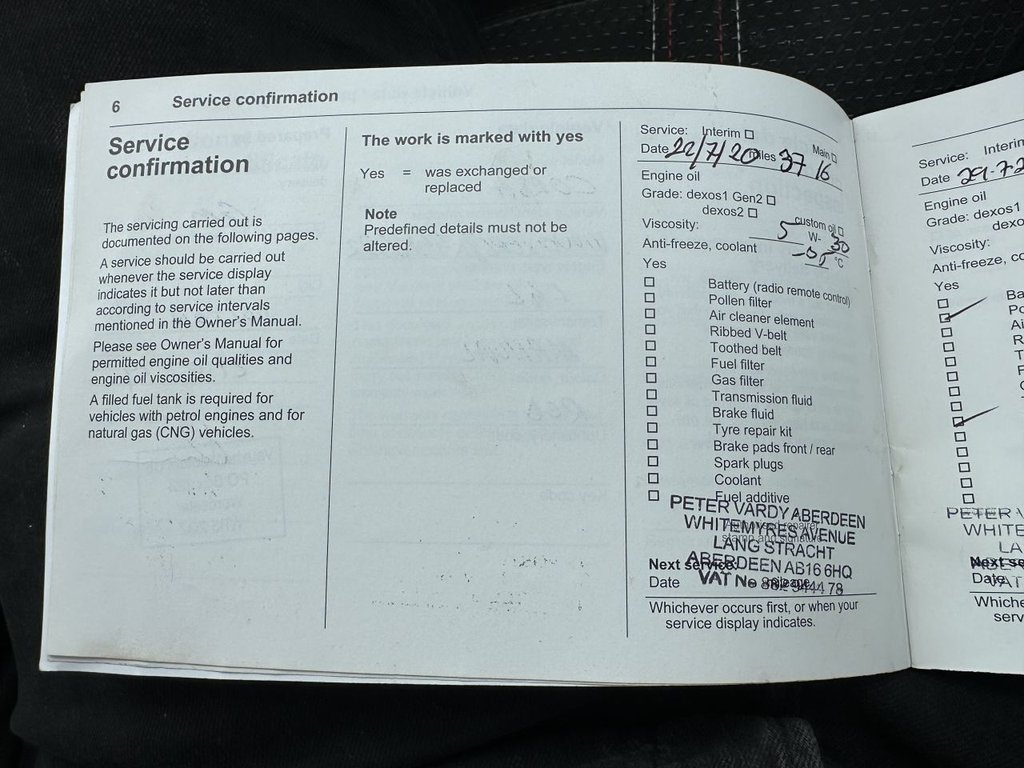 6 Service confirmation
Service
confirmation
The servicing carried out is
documented on the following pages.
A service should be carried out
whenever the service display
indicates it but not later than
according to service intervals
mentioned in the Owner's Manual.
Please see Owner's Manual for
permitted engine oil qualities and
engine oil viscosities.
A filled fuel tank is required for
vehicles with petrol engines and for
natural gas (CNG) vehicles.
The work is marked with yes
Yes = was exchanged or
replaced
Note
Predefined details must not be
altered.
Service: Interim □ Main □
Date 22/7/20 miles 3716
Engine oil
Grade: dexos1 Gen2 □
dexos2 □
custom oil □
Viscosity: 5 W- 30
Anti-freeze, coolant °C
Yes
□ Battery (radio remote control)
□ Pollen filter
□ Air cleaner element
□ Ribbed V-belt
□ Toothed belt
□ Fuel filter
□ Gas filter
□ Transmission fluid
□ Brake fluid
□ Tyre repair kit
□ Brake pads front / rear
□ Spark plugs
□ Coolant
□ Fuel additive
PETER VARDY ABERDEEN
WHITEMYRES AVENUE
LANG STRACHT
ABERDEEN AB16 6HQ
VAT No 882 9444 78
Next service:
Date mileage
Whichever occurs first, or when your
service display indicates.
Service: Interim
Date 29.7.2
Engine oil
Grade: dexos1
Viscosity:
Yes
PETER
WHITE
LA
Next se
Date